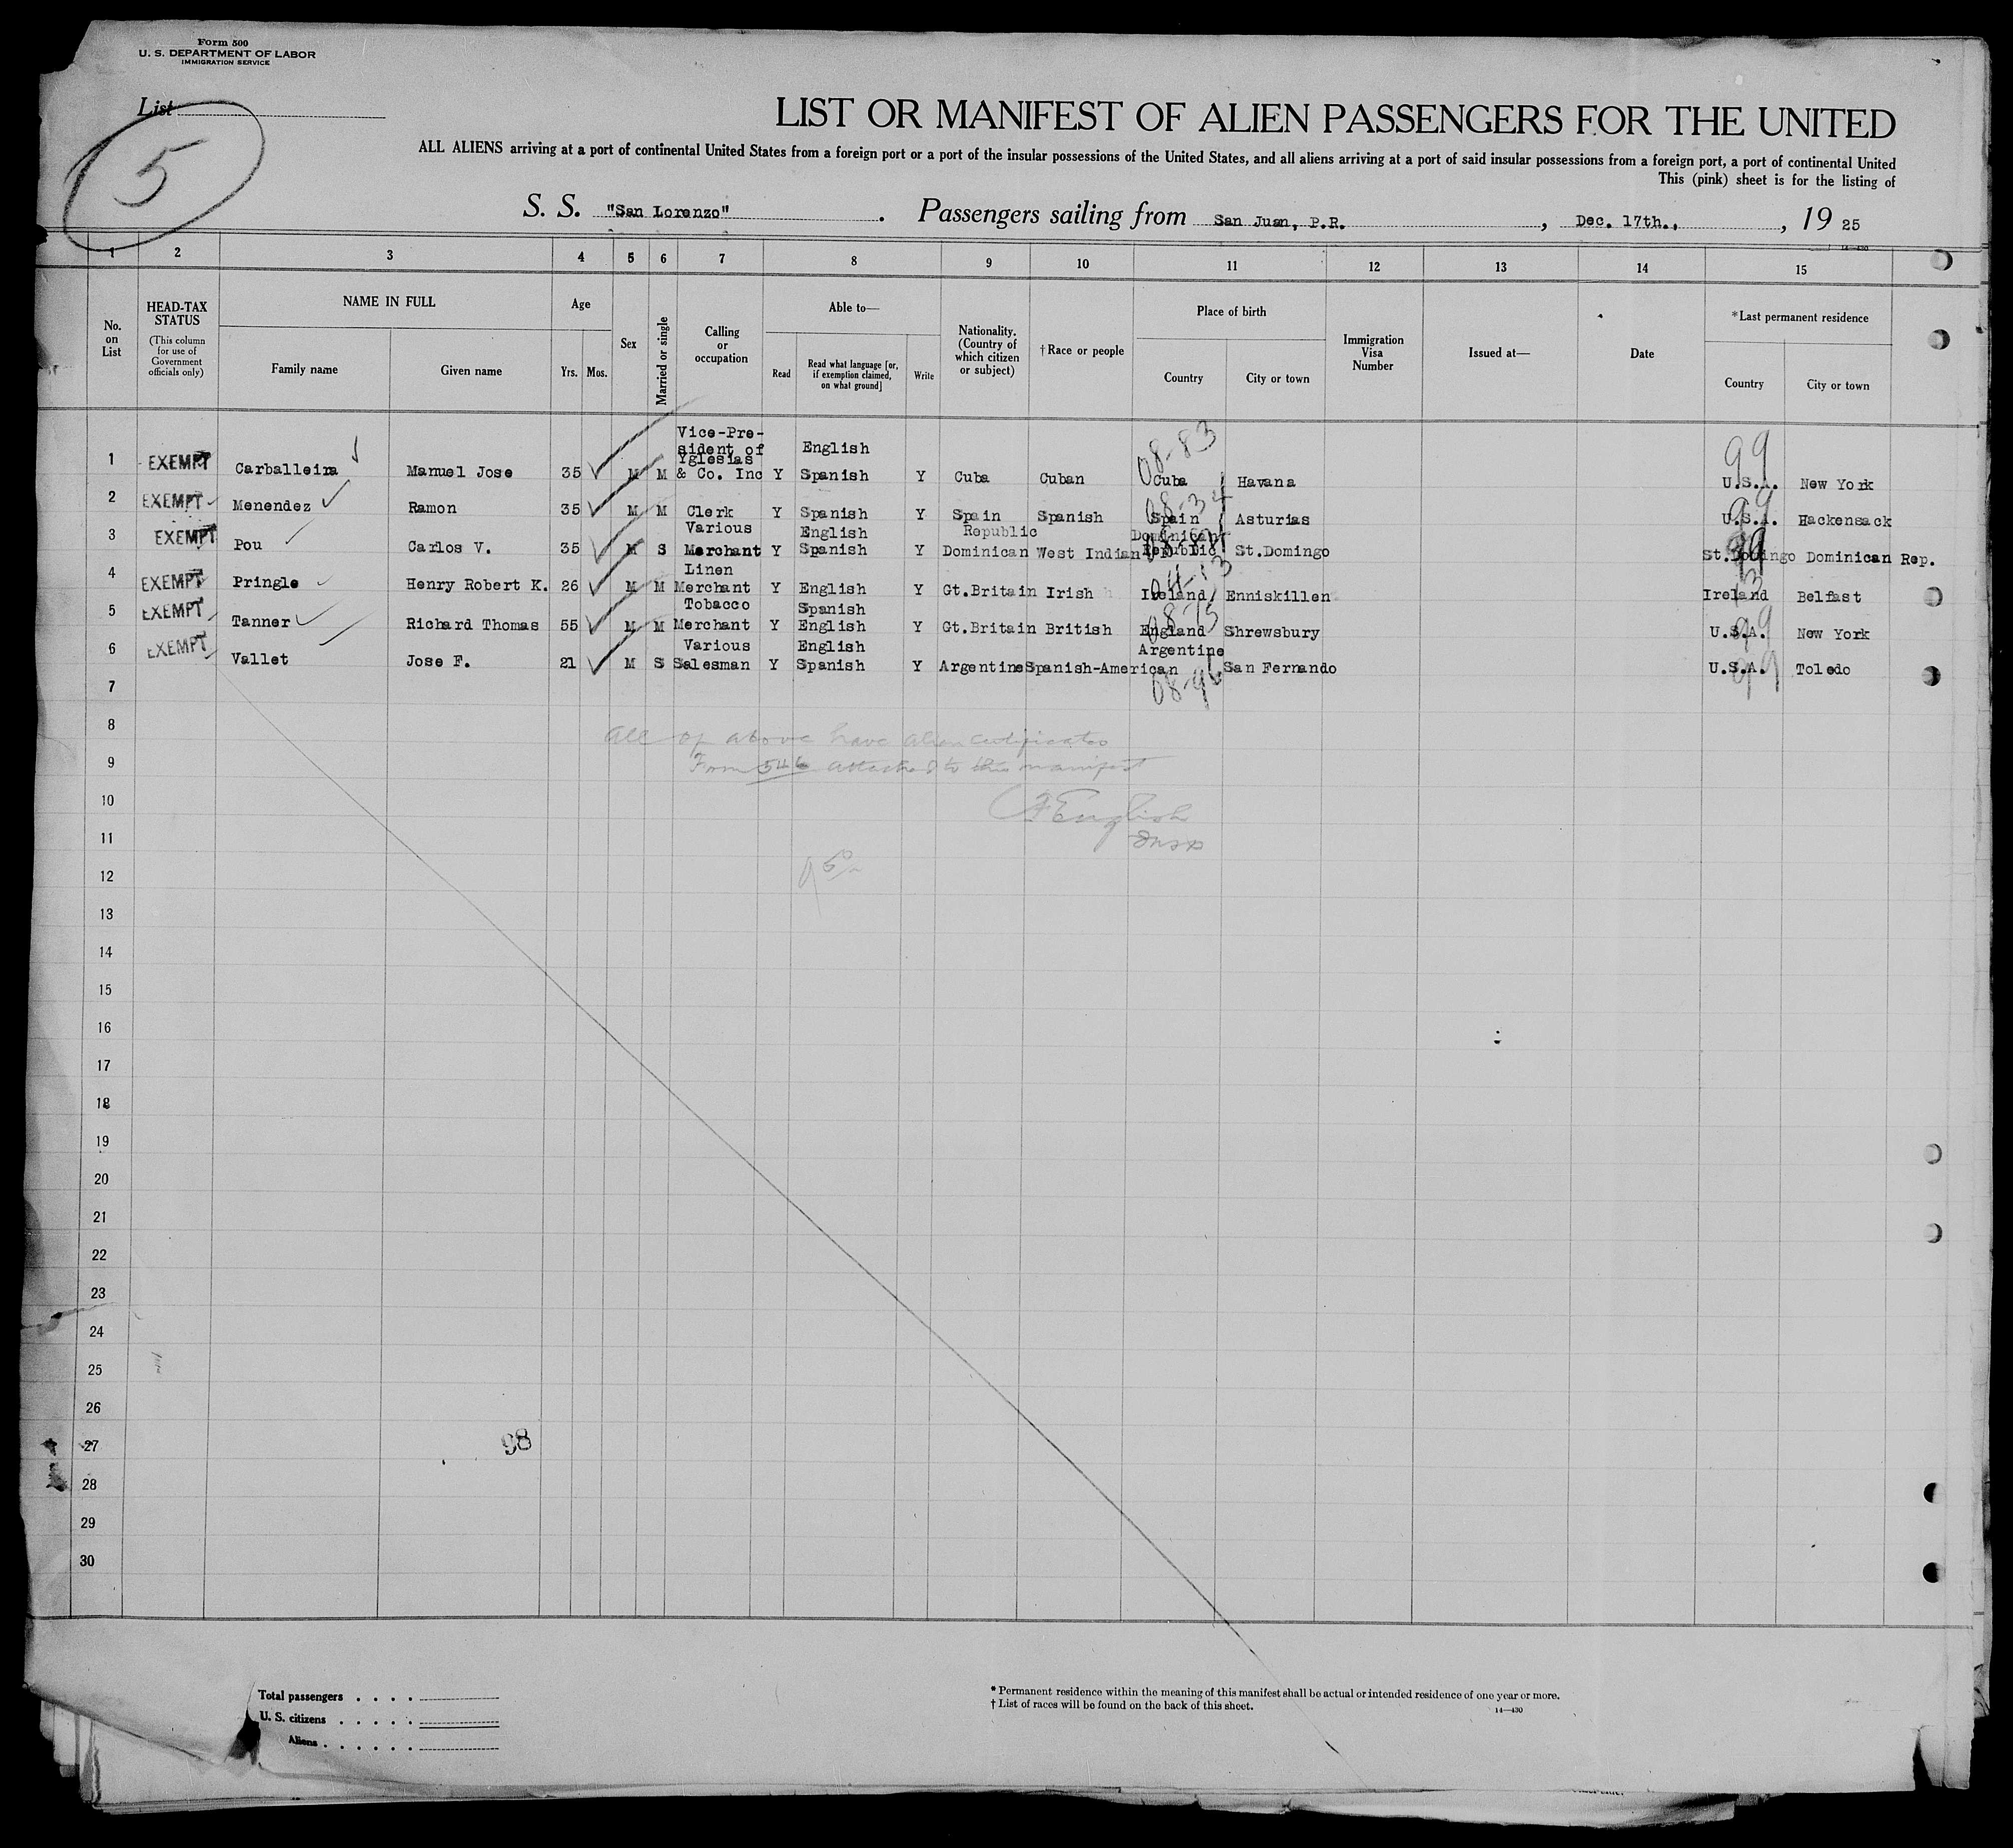 Form 500
U. S. DEPARTMENT OF LABOR
IMMIGRATION SERVICE
List
5
LIST OR MANIFEST OF ALIEN PASSENGERS FOR THE UNITED
ALL ALIENS arriving at a port of continental United States from a foreign port or a port of the insular possessions of the United States, and all aliens arriving at a port of said insular possessions from a foreign port, a port of continental United
This (pink) sheet is for the listing of
S. S. "San Lorenzo". Passengers sailing from San Juan, P.R., Dec. 17th., 19 25
14-430
1 2 3 4 5 6 7 8 9 10 11 12 13 14 15
No. on List
HEAD-TAX STATUS (This column for use of Government officials only)
NAME IN FULL Family name Given name
Age Yrs. Mos.
Sex
Married or single
Calling or occupation
Able to— Read Read what language [or, if exemption claimed, on what ground] Write
Nationality. (Country of which citizen or subject)
†Race or people
Place of birth Country City or town
Immigration Visa Number
Issued at—
Date
*Last permanent residence Country City or town
1 EXEMPT Carballeira Manuel Jose 35 M M Vice-President of Yglesias & Co. Inc Y English Spanish Y Cuba Cuban 08-83 Cuba Havana 99 U.S.A. New York
2 EXEMPT Menendez Ramon 35 M M Clerk Y Spanish Y Spain Spanish 08-34 Spain Asturias 99 U.S.A. Hackensack
3 EXEMPT Pou Carlos V. 35 M S Various Merchant Y English Spanish Y Republic Dominican West Indian Dominican Republic St.Domingo St.Domingo Dominican Rep.
4 EXEMPT Pringle Henry Robert K. 26 M M Linen Merchant Y English Y Gt.Britain Irish Ireland Enniskillen Ireland Belfast
5 EXEMPT Tanner Richard Thomas 55 M M Tobacco Merchant Y Spanish English Y Gt.Britain British 08-15 England Shrewsbury 99 U.S.A. New York
6 EXEMPT Vallet Jose F. 21 M S Various Salesman Y English Spanish Y Argentine Spanish-American Argentine San Fernando 99 U.S.A. Toledo
7
8
All of above have alien certificates
9
Form 546 attached to this manifest
10
English
11
Insp
12
13
14
15
16
17
18
19
20
21
22
23
24
25
26
27
98
28
29
30
Total passengers . . . .
U. S. citizens . . . . .
Aliens . . . . . .
* Permanent residence within the meaning of this manifest shall be actual or intended residence of one year or more.
† List of races will be found on the back of this sheet.
14—430